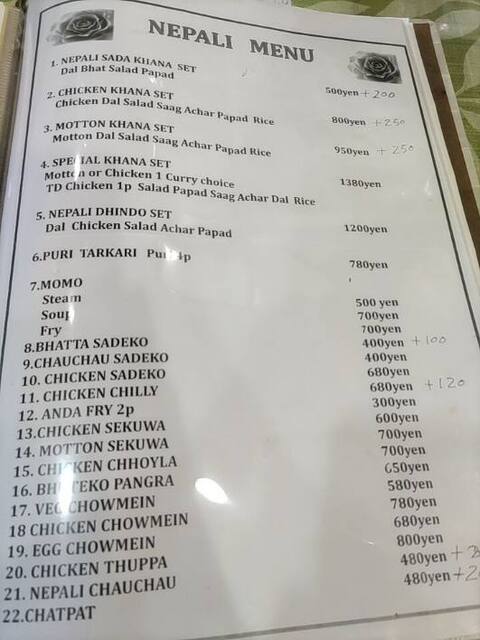 NEPALI MENU
1. NEPALI SADA KHANA SET
Dal Bhat Salad Papad 500yen +200
2. CHICKEN KHANA SET
Chicken Dal Salad Saag Achar Papad Rice 800yen +250
3. MOTTON KHANA SET
Motton Dal Salad Saag Achar Papad Rice 950yen +250
4. SPECIAL KHANA SET
Motton or Chicken 1 Curry choice 1380yen
TD Chicken 1p Salad Papad Saag Achar Dal Rice
5. NEPALI DHINDO SET
Dal Chicken Salad Achar Papad 1200yen
6.PURI TARKARI 780yen
7.MOMO
Steam 500 yen
Soup 700yen
Fry 700yen
8.BHATTA SADEKO 400yen +100
9.CHAUCHAU SADEKO 400yen
10. CHICKEN SADEKO 680yen
11. CHICKEN CHILLY 680yen +120
12. ANDA FRY 2p 300yen
13.CHICKEN SEKUWA 600yen
14. MOTTON SEKUWA 700yen
15. CHICKEN CHHOYLA 700yen
16. PANGRA 650yen
17. VEG CHOWMEIN 580yen
18 CHICKEN CHOWMEIN 780yen
19. EGG CHOWMEIN 680yen
20. CHICKEN THUPPA 800yen
21. NEPALI CHAUCHAU 480yen
22.CHATPAT 480yen